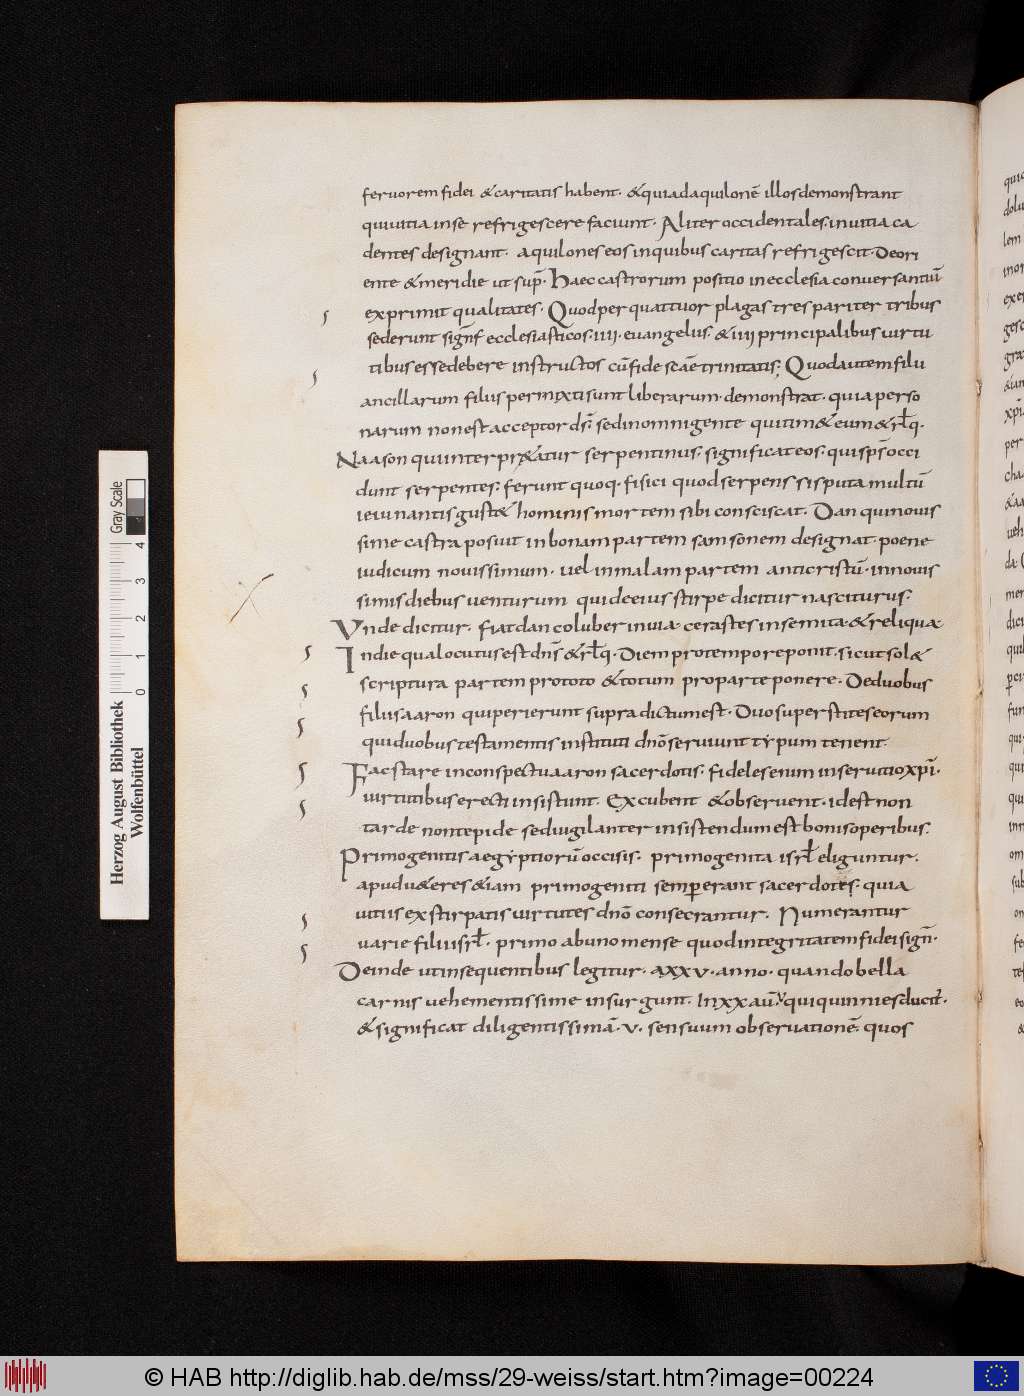 feruorem fidei & caritatis habent. & quia daquilonē illos demonstrant
qui uitia in se refrigescere faciunt. Aliter occidentales. in uitia ca
dentes designant. aquilones eos in quibus caritas refrigescit. De ori
ente & meridie ut sup̄. Haec castrorum positio in ecclesia conuersantiū
exprimit qualitates. Quod per quattuor plagas tres pariter tribus
sederunt signf̄ ecclesiasticos. iiii. euangeliis. & iiii principalibus uirtu
tibus esse debere instructos cū fide scāe trinitatis; Quod autem filii
ancillarum filiis permixti sunt liberarum. demonstrat. quia perso
narum non est acceptor ds̄. sed in omni gente qui tim& eum & rƚq.
Naason qui interpr&atur serpentinus. significat eos. qui ipsos̄ occi
dunt serpentes. ferunt quoq. fisici quod serpens si sputa multū
ieiunantis gust& hominis mortem sibi consciscat. Dan qui nouis
sime castra posuit in bonam partem samsonem designat. poene
iudicum nouissimum. uel in malam partem anticristū. in nouis
simis diebus uenturum qui de eius stirpe dicitur nasciturus.
Unde dicitur. fiat dan coluber in uia. cerastes in semita. & reliqua.
In die qua locutus est dn̄s & rƚq. Diem pro tempore ponit. sicut sol&
scriptura partem pro toto & totum pro parte ponere. De duobus
filiis aaron qui perierunt supra dictum est. Duo superstites eorum
qui duobus testamentis instituti dn̄o seruiunt typum tenent.
Fac stare in conspectu aaron sacerdotis. fideles enim in seruitio xp̄i.
uirtutibus erecti insistunt. Excubent & obseruent. id est non
tarde non tepide sed uigilanter insistendum est bonis operibus.
Primogenitis aegyptiorū occisis. primogenita isrƚ eliguntur.
apud u&eres &iam primogeniti semper erant sacerdotes. quia
uitiis exstirpatis uirtutes dn̄o consecrantur. Numerantur
uarie filii isrƚ. primo ab uno mense quod integritatem fidei sign̄.
Deinde ut in sequentibus legitur. a xxv. anno. quando bella
carnis uehementissime insurgunt. In xx aū. v qui quinnies ducit̄.
& significat diligentissimā. v. sensuum obseruationē. quos
Gray Scale
0 1 2 3 4
Herzog August Bibliothek
Wolfenbüttel
© HAB http://diglib.hab.de/mss/29-weiss/start.htm?image=00224